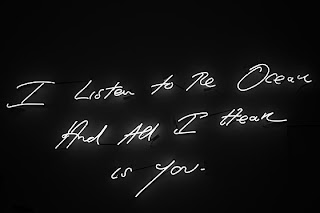 I Listen to The Ocean
And All I Hear
is You.